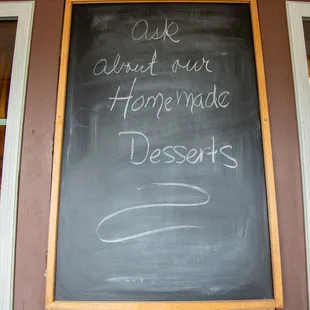 Ask
about our
Homemade
Desserts